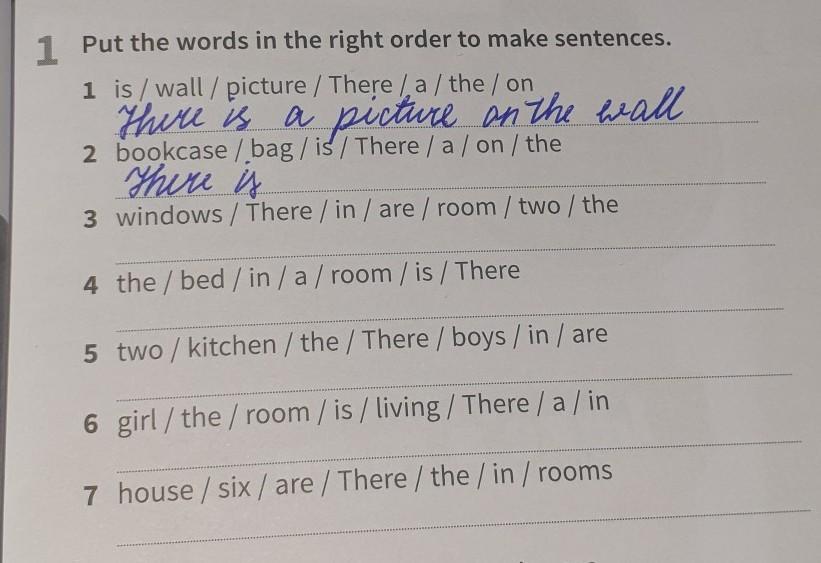 1 Put the words in the right order to make sentences.
1 is / wall / picture / There / a / the / on
There is a picture on the wall
2 bookcase / bag / is / There / a / on / the
There is
3 windows / There / in / are / room / two / the
4 the / bed / in / a / room / is / There
5 two / kitchen / the / There / boys / in / are
6 girl / the / room / is / living / There / a / in
7 house / six / are / There / the / in / rooms